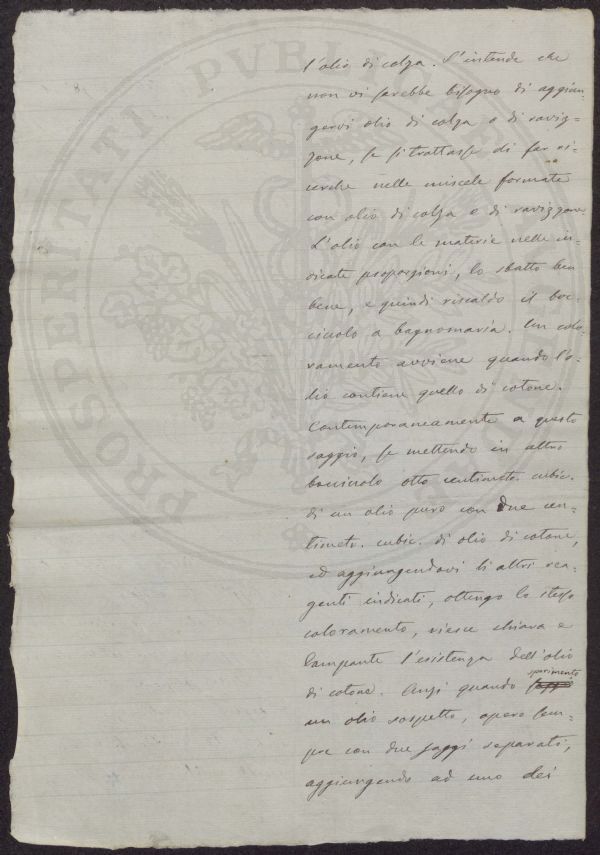 l'olio di colza. S'intende che
non vi sarebbe bisogno di aggiun-
gervi olio di colza o di raviz-
zone, se si trattasse di far ri-
cerche nelle miscele formate
con olio di colza e di ravizzone.
L'olio con le materie nelle in-
dicate proporzioni, lo sbatto ben
bene, e quindi riscaldo il boc-
ciuolo a bagnomaria. Un colo-
ramento avviene quando l'o-
lio contiene quello di cotone.
Contemporaneamente a questo
saggio, se mettendo in altro
bocciuolo otto centimet. cubic.
di un olio puro con due cen-
timet. cubic. di olio di cotone,
ed aggiungendovi li altri rea-
genti indicati, ottengo lo stesso
coloramento, riesce chiara e
lampante l'esistenza dell'olio
di cotone. Anzi quando sperimento
un olio sospetto, opero sem-
pre con due saggi separati,
aggiungendo ad uno dei
PROSPERITATI PVBLICAE